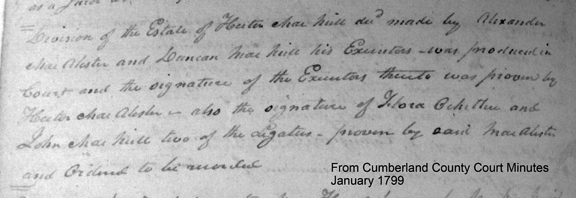 as a Juror
Division of the Estate of Hector MacNeill decd made by Alexander
MacAlester and Duncan MacNeill his Executors was produced in
Court and the signature of the Executors thereto was proven by
Hector MacAlester - also the signature of Flora and
John MacNeill two of the Legatees - proven by said MacAlester
and Ordered to be recorded
From Cumberland County Court Minutes
January 1799